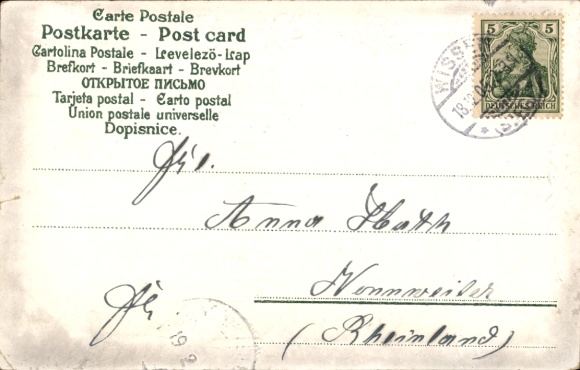 Carte Postale
Postkarte - Post card
Cartolina Postale - Levelezö-Lap
Brefkort - Briefkaart - Brevkort
ОТКРЫТОЕ ПИСЬМО
Tarjeta postal - Carto postal
Union postale universelle
Dopisnice.
5 5
DEUTSCHES REICH
WISS
18.
Frl.
Anna
Nonnweiler
(Rheinland)
19 2